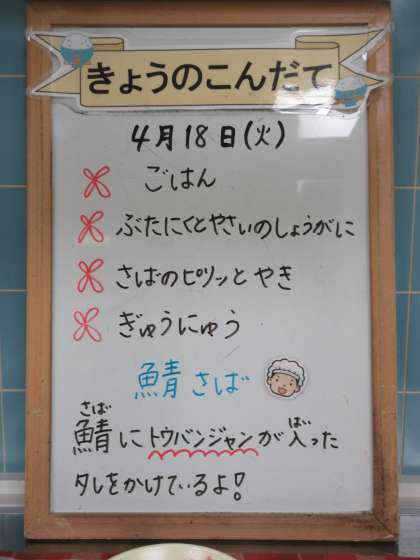 きょうのこんだて
4月18日(火)
ごはん
ぶたにくとやさいのしょうがに
さばのピリッとやき
ぎゅうにゅう
鯖さば
さば
鯖にトウバンジャンが入った
ばい
タレをかけているよ!